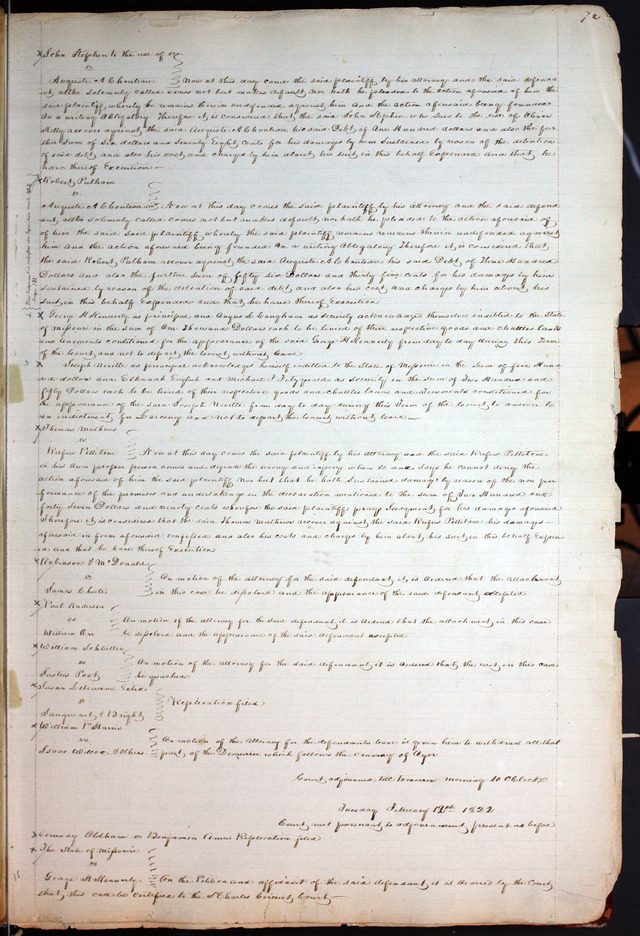 John Stephen to the use of &c
vs
Auguste A Chouteau Now at this day come the said plaintiff by his attorney and the said defend
ant, altho solemnly called comes not but makes default, nor hath he pleaded to the action aforesaid of him the
said plaintiff, whereby he remains therein undefended against him and the action aforesaid being founded
On a writing Obligatory Therefore it is considered that the said John Stephen who sues to the use of Oliver
recover against the said Auguste A Chouteau his said Debt of One Hundred dollars and also the fur
ther Sum of six dollars and Seventy Eight Cents for his damages by him Sustained by reason of the detention
of said debt and also his cost and charges by him about his suit in this behalf Expended and that he
have thereof Execution—
Robert Pulham
vs
Auguste A Chouteau Now at this day comes the said plaintiff by his attorney and the said defend
ant, altho solemnly called comes not but makes default, nor hath he pleaded to the action aforesaid of
of him the said Said plaintiff whereby the said plaintiff remains remains therein undefended against
him and the action aforesaid being founded On a writing Obligatory Therefore it is considered that
the said Robert Pulham recover against the said Auguste A Chouteau his said Debt of Three Hundred
Dollars and also the further Sum of fifty six Dollars and thirty five cents for his damages by him
Sustained by reason of the detention of said debt and also his cost and charges by him about his
suit in this behalf Expended and that he have thereof Execution
George H Kennerly as principal and Angus L Langham as security acknowledge themselves indebted to the State
of Missouri in the Sum of One Thousand Dollars each to be levied of their respective goods and chattles lands
and tenements conditioned for the appearance of the said George H Kennerly from day to day during this Term
of the Court and not to depart the Court without leave
Joseph Neville as principal acknowledges himself indebted to the State of Missouri in the Sum of five Hund
red dollars and Elkanah English and Michael J Fitzgerald as Security in the Sum of Two Hundred and
fifty Dollars each to be levied of their respective goods and chattles lands and Tenements conditioned for
the appearance of the said Joseph Neville from day to day during this Term of the Court to answer to
an indictment for Larceny and not to depart the Court without leave—
Thomas Mathews
vs
Rufus Pettibone Now at this day come the said plaintiff by his attorney and the said Rufus Pettibone
in his Own proper person comes and defends the wrong and injury when &c and says he cannot deny the
action aforesaid of him the said plaintiff Nor but that he hath Sustained damage by reason of the non per
formance of the promises and undertakings in the declaration mentioned to the Sum of Two Hundred and
forty Seven Dollars and ninety cents wherefore the said plaintiff prays Judgment for his damages aforesaid
Therefore it is considered that the said Thomas Mathews recover against the said Rufus Pettibone his damages
aforesaid in form aforesaid confessed and also his costs and charges by him about his suit in this behalf Expen
ed and that he have thereof Execution
Robinson & McDonald
vs
James Chute On motion of the attorney for the said defendant it is Ordered that the attachment
in this case be disolved and the appearance of the said defendant excepted
Paul Anderson
vs
William Orr On motion of the attorney for the said defendant it is ordered that the attachment in this case
be disolved and the appearance of the said defendant accepted
William Schlatter
vs
Justus Post On motion of the attorney for the said defendant it is ordered that the writ in this case
be quashed
Susan
vs Replication filed
Sanguinet & Bright
William P Harris
vs
Isaac Wilcox & others On motion of the Attorney for the defendants leave is given him to withdraw all that
part of the Demurrer which follows the craving of Oyer
Court adjourned till tomorrow morning 10 OClock
Tuesday February 12th 1822
Court met pursuant to adjournment, present as before
Conway Oldham vs Benjamin Amos Replication filed
The State of Missouri
vs
George H Kennerly On the Petition and affidavit of the said defendant it is Ordered by the Court
that this case be certified to the St Charles Circuit Court—